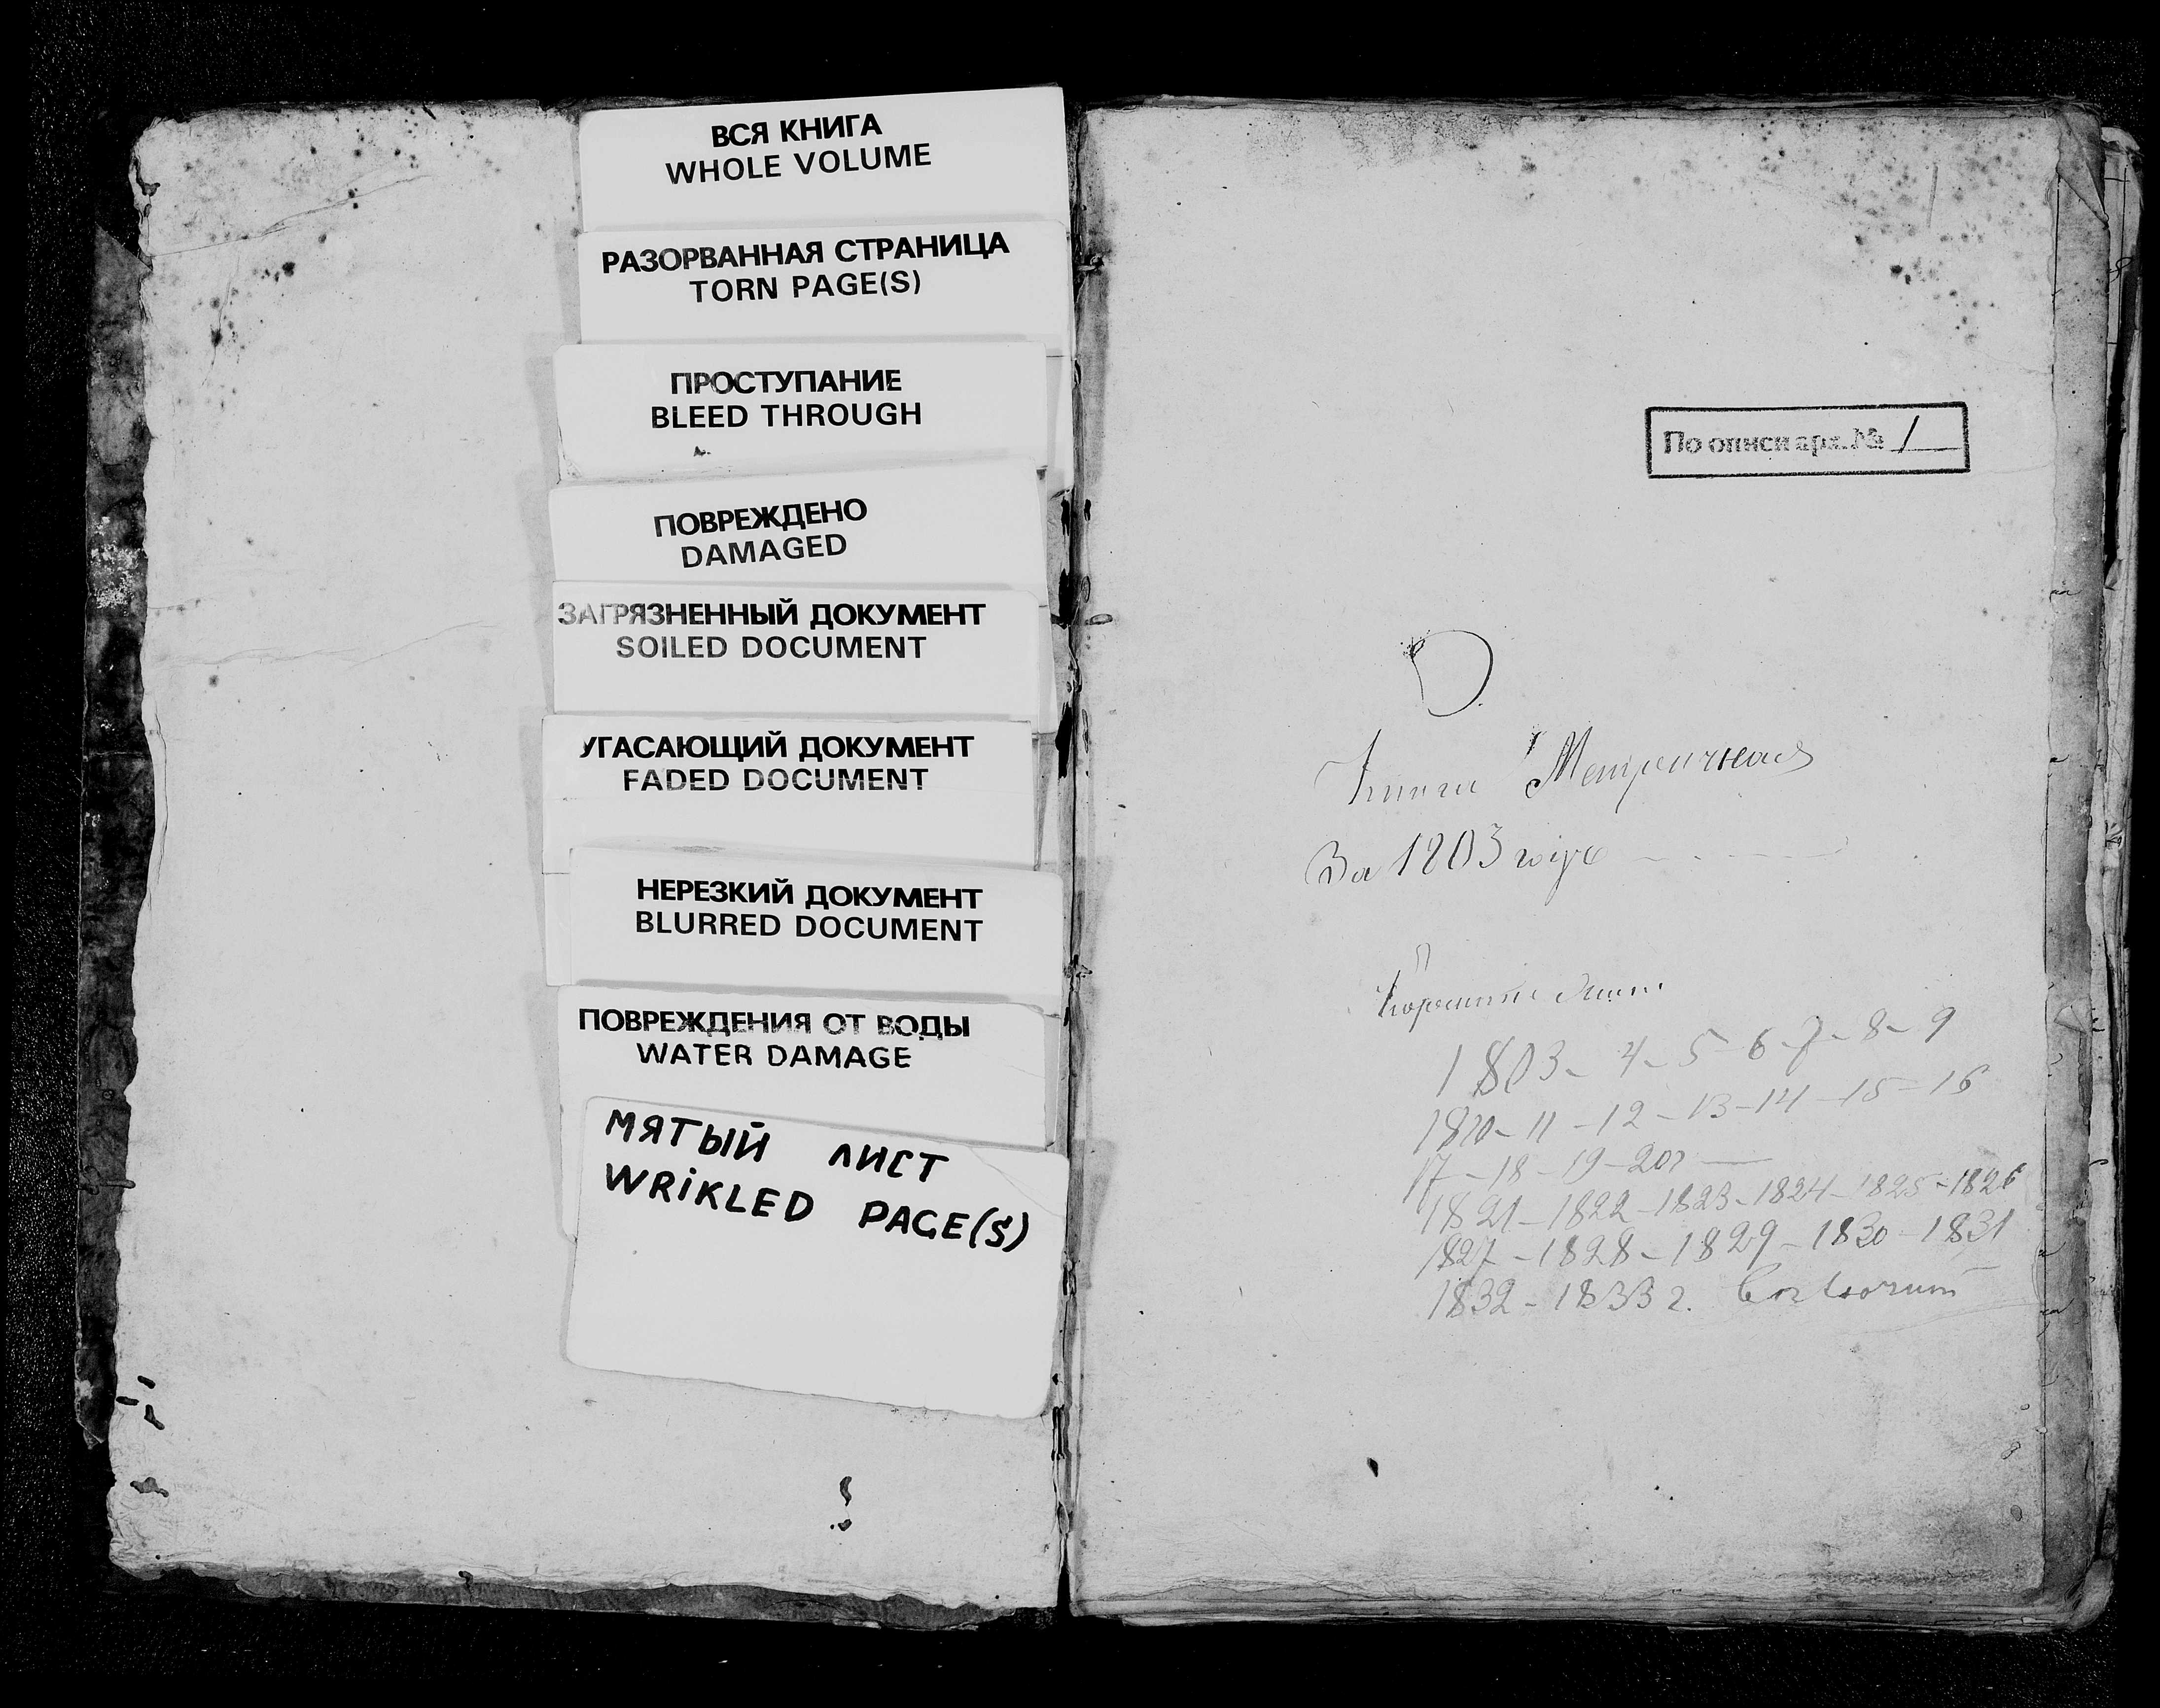 ВСЯ КНИГА
WHOLE VOLUME
РАЗОРВАННАЯ СТРАНИЦА
TORN PAGE(S)
ПРОСТУПАНИЕ
BLEED THROUGH
ПОВРЕЖДЕНО
DAMAGED
ЗАГРЯЗНЕННЫЙ ДОКУМЕНТ
SOILED DOCUMENT
УГАСАЮЩИЙ ДОКУМЕНТ
FADED DOCUMENT
НЕРЕЗКИЙ ДОКУМЕНТ
BLURRED DOCUMENT
ПОВРЕЖДЕНИЯ ОТ ВОДЫ
WATER DAMAGE
МЯТЫЙ ЛИСТ
WRIKLED PAGE(S)
По описи арх. № 1
Книга Метричная
За 1803 годъ
1803 - 4 - 5 - 6 - 7 - 8 - 9
1810 - 11 - 12 - 13 - 14 - 15 - 16
17 - 18 - 19 - 20 г
1821 - 1822 - 1823 - 1824 - 1825 - 1826
1827 - 1828 - 1829 - 1830 - 1831
1832 - 1833 г.